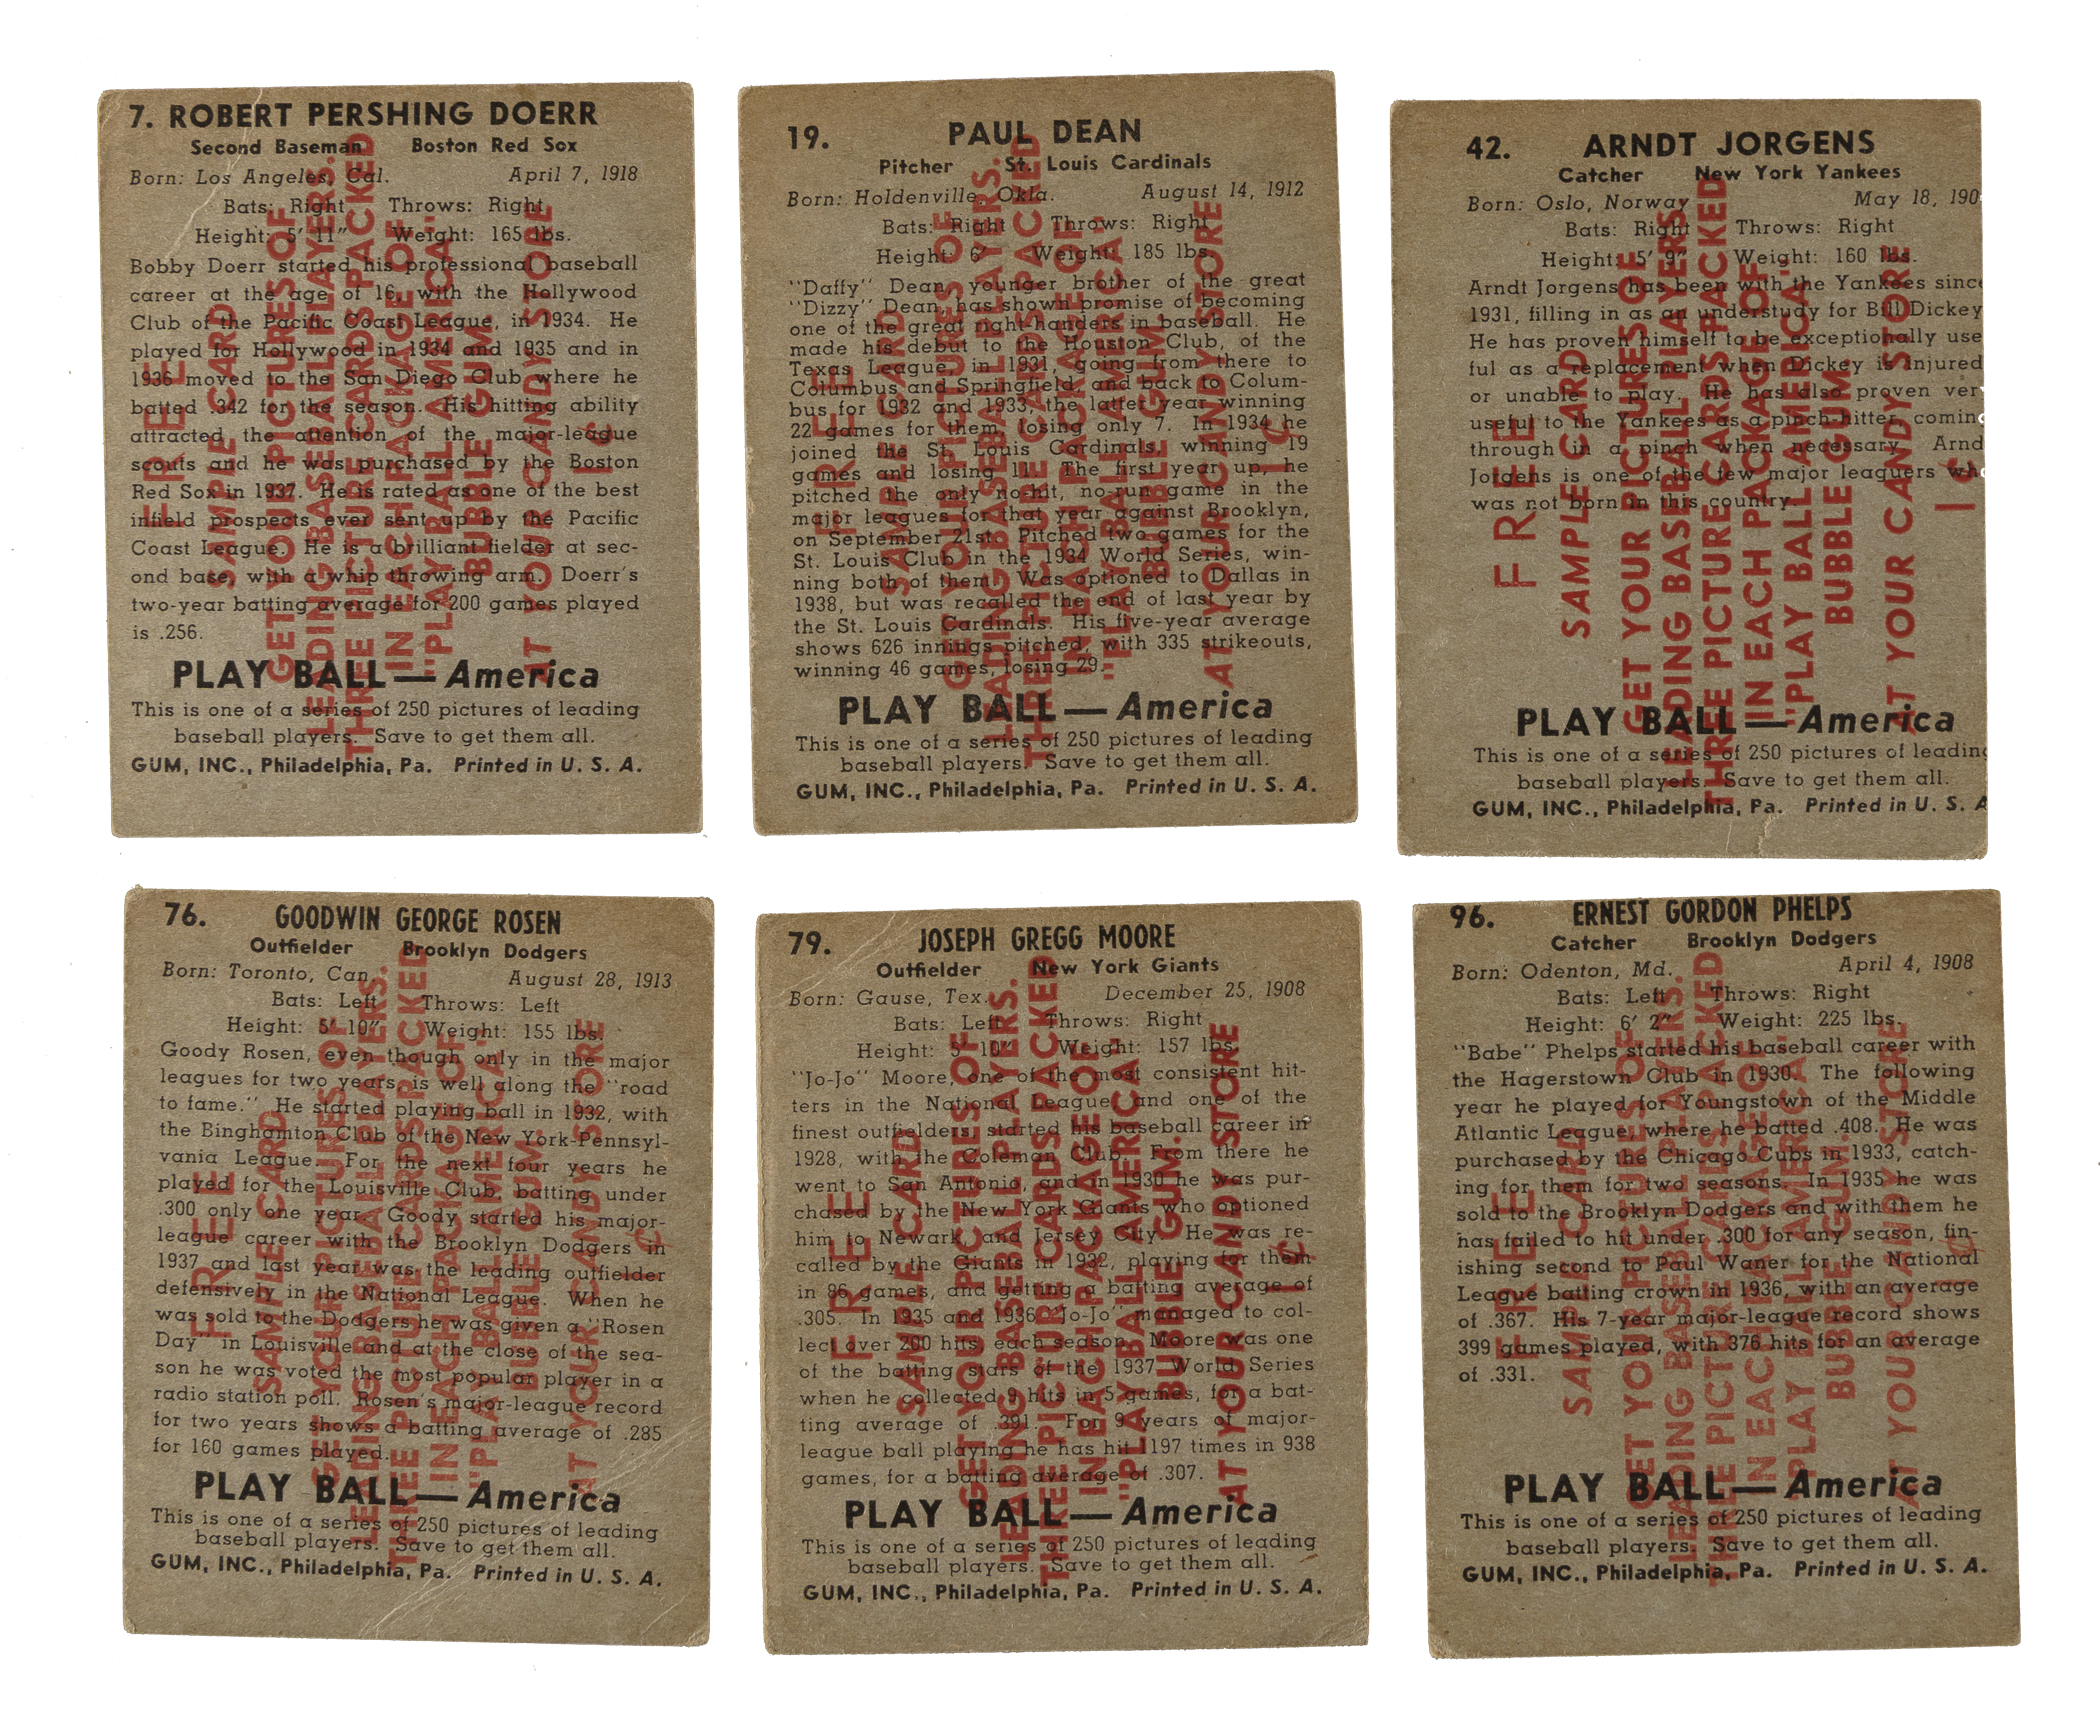 7. ROBERT PERSHING DOERR
Second Baseman Boston Red Sox
Born: Los Angeles, Cal. April 7, 1918
Bats: Right Throws: Right
Height: 5' 11" Weight: 165 lbs.
Bobby Doerr started his professional baseball
career at the age of 16, with the Hollywood
Club of the Pacific Coast League, in 1934. He
played for Hollywood in 1934 and 1935 and in
1936 moved to the San Diego Club where he
batted .342 for the season. His hitting ability
attracted the attention of the major-league
scouts and he was purchased by the Boston
Red Sox in 1937. He is rated as one of the best
infield prospects ever sent up by the Pacific
Coast League. He is a brilliant fielder at sec-
ond base, with a whip throwing arm. Doerr's
two-year batting average for 200 games played
is .256.
PLAY BALL—America
This is one of a series of 250 pictures of leading
baseball players. Save to get them all.
GUM, INC., Philadelphia, Pa. Printed in U. S. A.
FREE
SAMPLE CARD
GET YOUR PICTURES OF
LEADING BASEBALL PLAYERS.
THREE PICTURE CARDS PACKED
IN EACH PACKAGE OF
"PLAY BALL AMERICA"
BUBBLE GUM.
AT YOUR CANDY STORE
¢
19. PAUL DEAN
Pitcher St. Louis Cardinals
Born: Holdenville, Okla. August 14, 1912
Bats: Right Throws: Right
Height: 6' Weight: 185 lbs.
"Daffy" Dean, younger brother of the great
"Dizzy" Dean, has shown promise of becoming
one of the great right-handers in baseball. He
made his debut to the Houston Club, of the
Texas League, in 1931, going from there to
Columbus and Springfield, and back to Colum-
bus for 1932 and 1933, the latter year winning
22 games for them, losing only 7. In 1934 he
joined the St. Louis Cardinals, winning 19
games and losing 11. The first year up, he
pitched the only no-hit, no-run game in the
major leagues for that year against Brooklyn,
on September 21st. Pitched two games for the
St. Louis Club in the 1934 World Series, win-
ning both of them. Was optioned to Dallas in
1938, but was recalled the end of last year by
the St. Louis Cardinals. His five-year average
shows 626 innings pitched, with 335 strikeouts,
winning 46 games, losing 29.
PLAY BALL—America
This is one of a series of 250 pictures of leading
baseball players. Save to get them all.
GUM, INC., Philadelphia, Pa. Printed in U. S. A.
FREE
SAMPLE CARD
GET YOUR PICTURES OF
LEADING BASEBALL PLAYERS.
THREE PICTURE CARDS PACKED
IN EACH PACKAGE OF
"PLAY BALL AMERICA"
BUBBLE GUM.
AT YOUR CANDY STORE
¢
42. ARNDT JORGENS
Catcher New York Yankees
Born: Oslo, Norway May 18, 190
Bats: Right Throws: Right
Height: 5' 9" Weight: 160 lbs.
Arndt Jorgens has been with the Yankees sinc
1931, filling in as an understudy for Bill Dickey
He has proven himself to be exceptionally use
ful as a replacement when Dickey is injured
or unable to play. He has also proven ver
useful to the Yankees as a pinch-hitter, coming
through in a pinch when necessary. Arnd
Jorgens is one of the few major leaguers who
was not born in this country.
PLAY BALL—America
This is one of a series of 250 pictures of leading
baseball players. Save to get them all.
GUM, INC., Philadelphia, Pa. Printed in U. S. A
FREE
SAMPLE CARD
GET YOUR PICTURES OF
LEADING BASEBALL PLAYERS.
THREE PICTURE CARDS PACKED
IN EACH PACKAGE OF
"PLAY BALL AMERICA"
BUBBLE GUM.
AT YOUR CANDY STORE
1¢
76. GOODWIN GEORGE ROSEN
Outfielder Brooklyn Dodgers
Born: Toronto, Can. August 28, 1913
Bats: Left Throws: Left
Height: 5' 10" Weight: 155 lbs.
Goody Rosen, even though only in the major
leagues for two years, is well along the "road
to fame." He started playing ball in 1932, with
the Binghamton Club of the New York-Pennsyl-
vania League. For the next four years he
played for the Louisville Club, batting under
.300 only one year. Goody started his major-
league career with the Brooklyn Dodgers in
1937 and last year was the leading outfielder
defensively in the National League. When he
was sold to the Dodgers he was given a "Rosen
Day" in Louisville and at the close of the sea-
son he was voted the most popular player in a
radio station poll. Rosen's major-league record
for two years shows a batting average of .285
for 160 games played.
PLAY BALL—America
This is one of a series of 250 pictures of leading
baseball players. Save to get them all.
GUM, INC., Philadelphia, Pa. Printed in U. S. A.
FREE
SAMPLE CARD
GET YOUR PICTURES OF
LEADING BASEBALL PLAYERS.
THREE PICTURE CARDS PACKED
IN EACH PACKAGE OF
"PLAY BALL AMERICA"
BUBBLE GUM.
AT YOUR CANDY STORE
¢
79. JOSEPH GREGG MOORE
Outfielder New York Giants
Born: Gause, Tex. December 25, 1908
Bats: Left Throws: Right
Height: 5' 10" Weight: 157 lbs.
"Jo-Jo" Moore, one of the most consistent hit-
ters in the National League, and one of the
finest outfielders, started his baseball career in
1928, with the Coleman Club. From there he
went to San Antonio, and in 1930 he was pur-
chased by the New York Giants who optioned
him to Newark, and Jersey City. He was re-
called by the Giants in 1932, playing for them
in 86 games, and getting a batting average of
.305. In 1935 and 1936 "Jo-Jo" managed to col-
lect over 200 hits each season. Moore was one
of the batting stars of the 1937 World Series
when he collected 9 hits in 5 games, for a bat-
ting average of .391. For 9 years of major-
league ball playing he has hit 1197 times in 938
games, for a batting average of .307.
PLAY BALL—America
This is one of a series of 250 pictures of leading
baseball players. Save to get them all.
GUM, INC., Philadelphia, Pa. Printed in U. S. A.
FREE
SAMPLE CARD
GET YOUR PICTURES OF
LEADING BASEBALL PLAYERS.
THREE PICTURE CARDS PACKED
IN EACH PACKAGE OF
"PLAY BALL AMERICA"
BUBBLE GUM.
AT YOUR CANDY STORE
¢
96. ERNEST GORDON PHELPS
Catcher Brooklyn Dodgers
Born: Odenton, Md. April 4, 1908
Bats: Left Throws: Right
Height: 6' 2" Weight: 225 lbs.
"Babe" Phelps started his baseball career with
the Hagerstown Club in 1930. The following
year he played for Youngstown of the Middle
Atlantic League, where he batted .408. He was
purchased by the Chicago Cubs in 1933, catch-
ing for them for two seasons. In 1935 he was
sold to the Brooklyn Dodgers and with them he
has failed to hit under .300 for any season, fin-
ishing second to Paul Waner for the National
League batting crown in 1936, with an average
of .367. His 7-year major-league record shows
399 games played, with 376 hits for an average
of .331.
PLAY BALL—America
This is one of a series of 250 pictures of leading
baseball players. Save to get them all.
GUM, INC., Philadelphia, Pa. Printed in U. S. A.
FREE
SAMPLE CARD
GET YOUR PICTURES OF
LEADING BASEBALL PLAYERS.
THREE PICTURE CARDS PACKED
IN EACH PACKAGE OF
"PLAY BALL AMERICA"
BUBBLE GUM.
AT YOUR CANDY STORE
¢